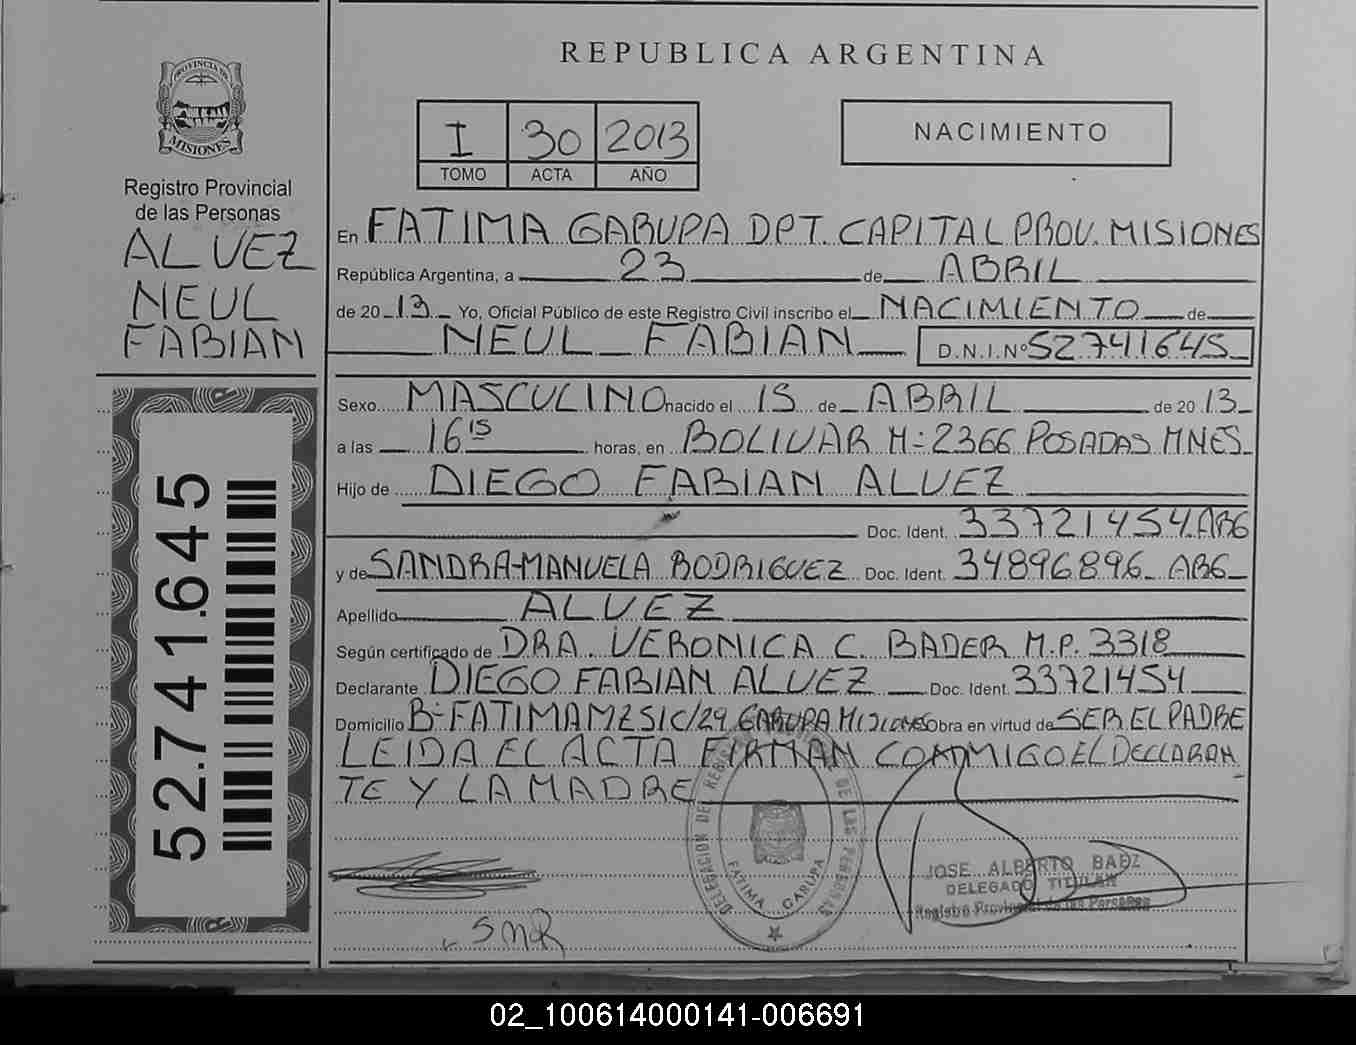 PROVINCIA DE
MISIONES
Registro Provincial
de las Personas
ALVEZ
NEUL
FABIAN
52.741.645
REPUBLICA ARGENTINA
I 30 2013
TOMO ACTA AÑO
NACIMIENTO
En FATIMA GARUPA DPT. CAPITAL PROV. MISIONES
República Argentina, a 23 de ABRIL
de 2013 Yo, Oficial Público de este Registro Civil inscribo el NACIMIENTO de
NEUL FABIAN D.N.I.Nº 52.741645
Sexo MASCULINO nacido el 15 de ABRIL de 2013
a las 16 15 horas, en BOLIVAR Nº 2366 POSADAS MNES
Hijo de DIEGO FABIAN ALVEZ
Doc. Ident. 33721454 ARG
y de SANDRA MANUELA RODRIGUEZ Doc. Ident. 34896896 ARG
Apellido ALVEZ
Según certificado de DRA. VERONICA C. BADER M.P. 3318
Declarante DIEGO FABIAN ALVEZ Doc. Ident. 33721454
Domicilio Bº FATIMA MZ S/C/29 GARUPA MISIONES Obra en virtud de SER EL PADRE
LEIDA EL ACTA FIRMAN CONMIGO EL DECLARAN
TE Y LA MADRE
DELEGACION DEL REGISTRO PROVINCIAL DE LAS PERSONAS
FATIMA GARUPA
JOSE ALBERTO BAEZ
DELEGADO TITULAR
Registro Provincial de las Personas
SMR
02_100614000141-006691